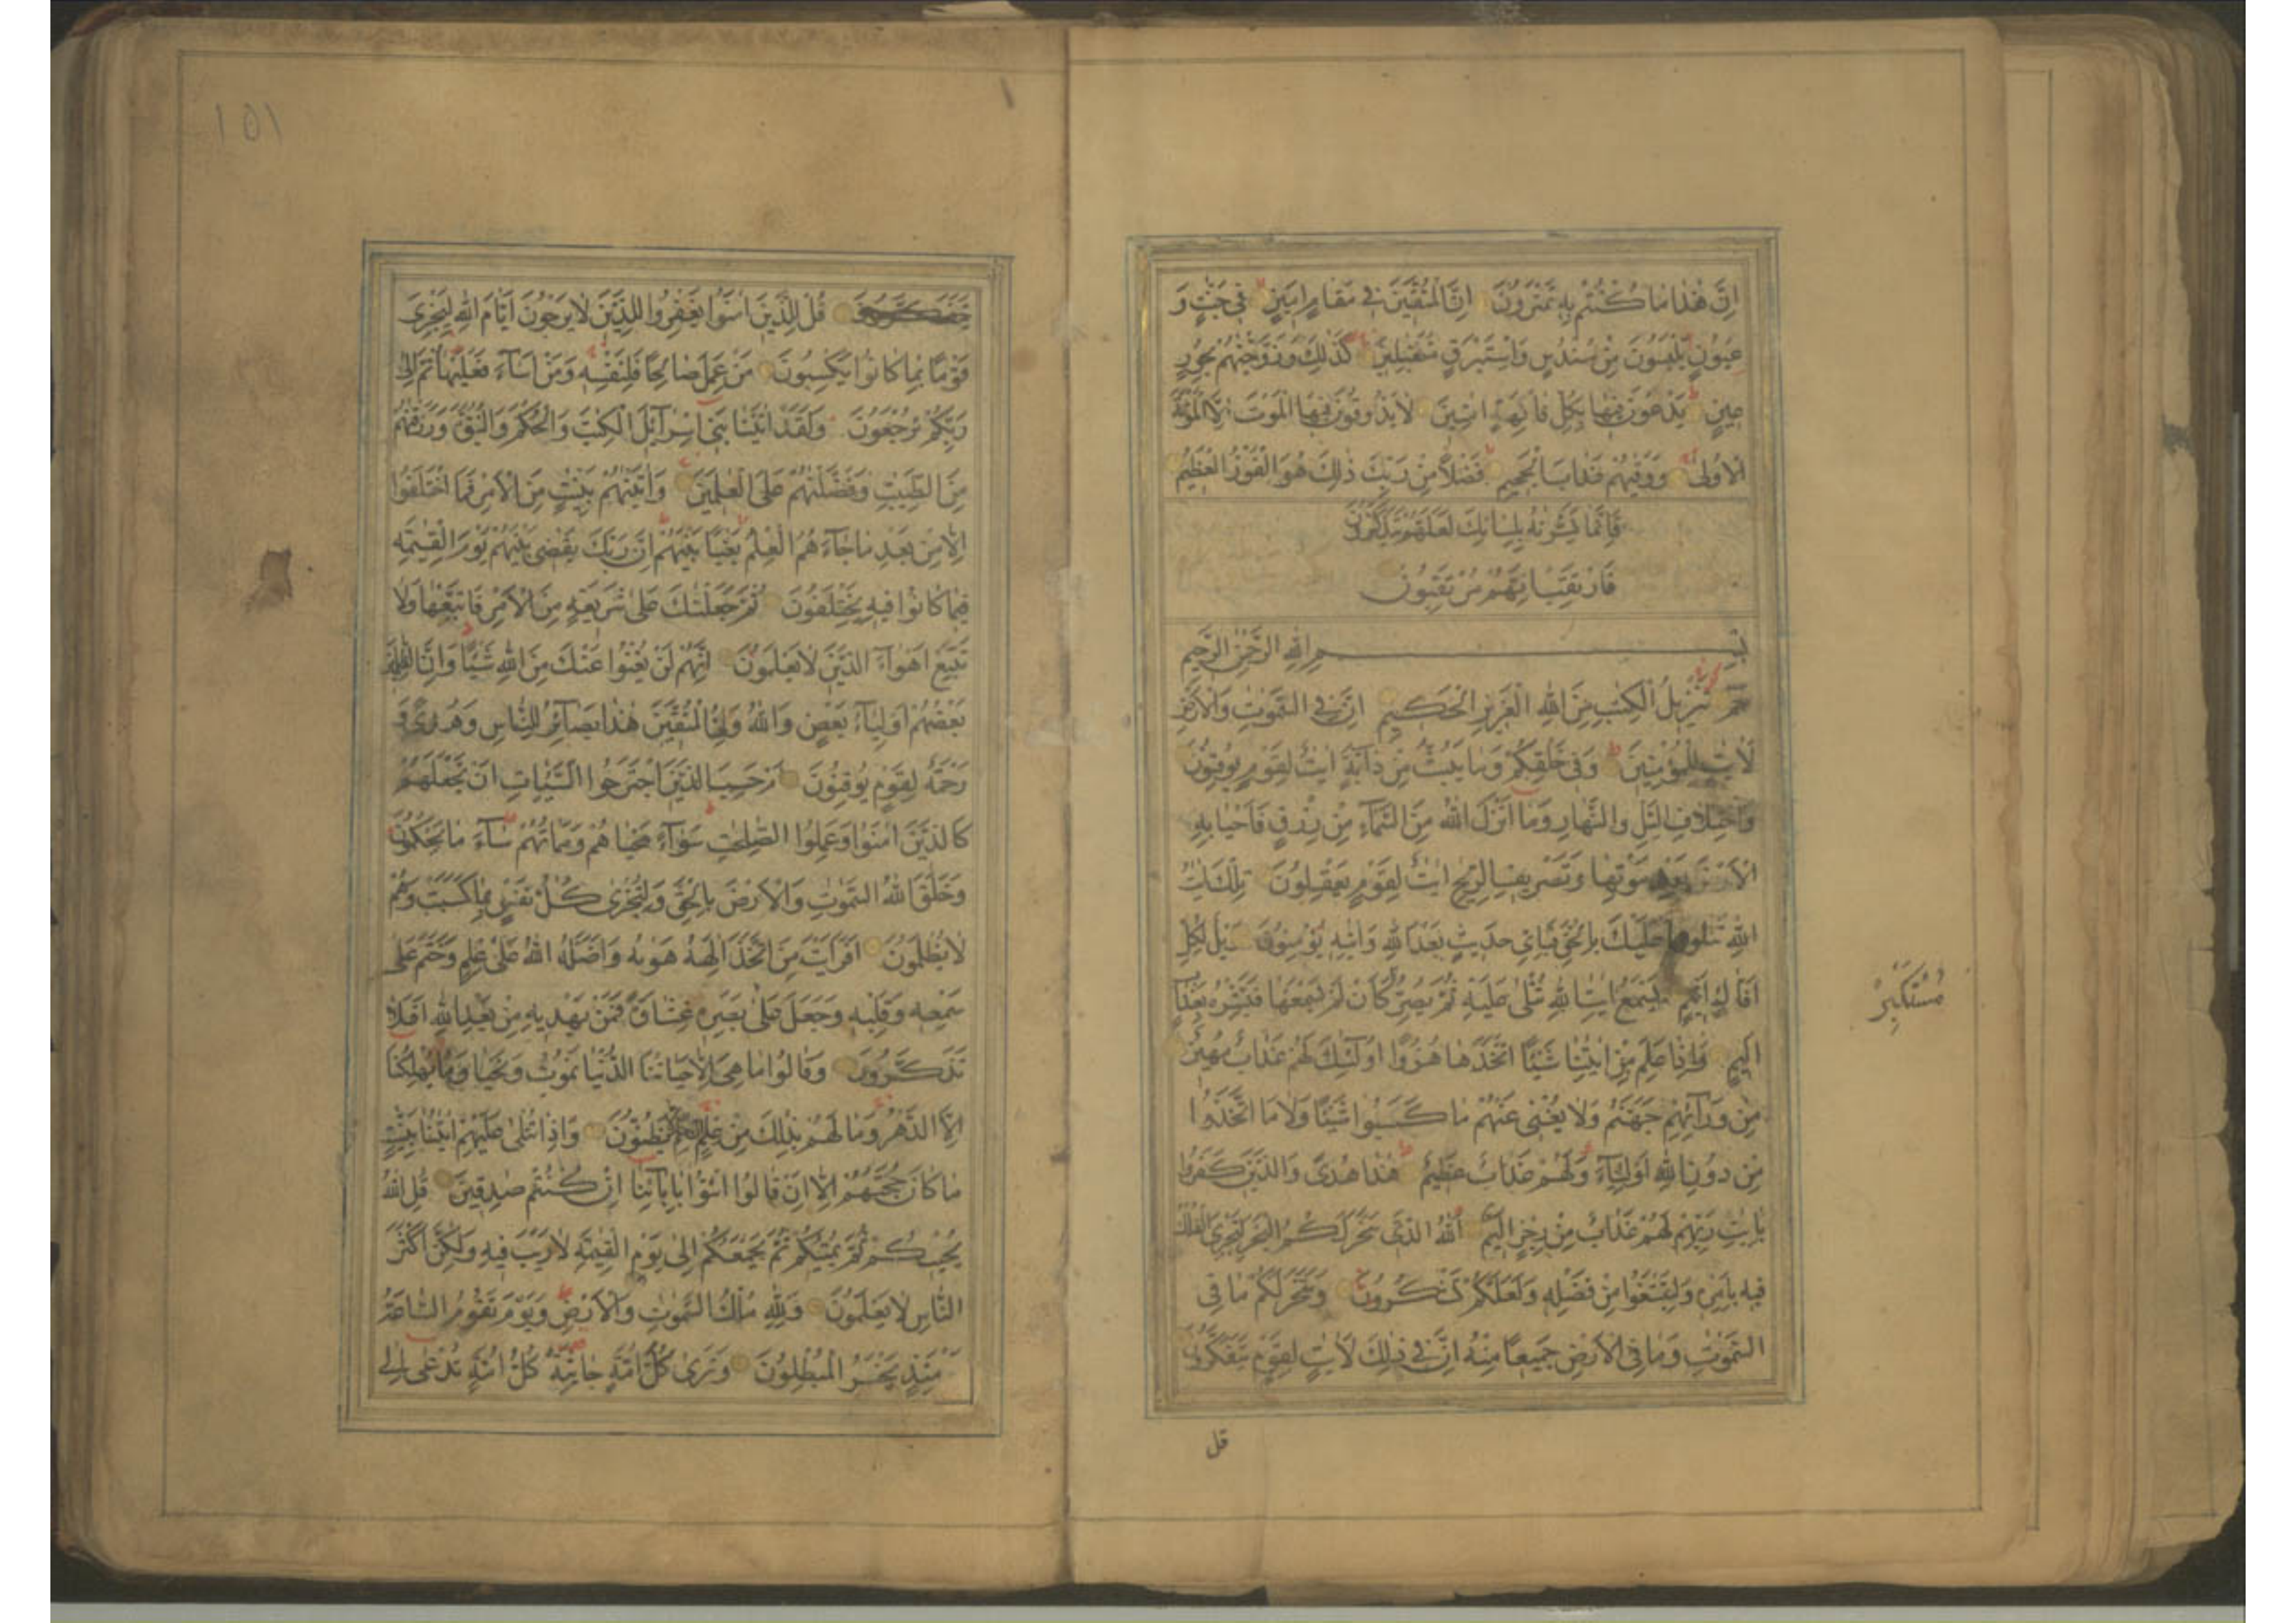 اِنَّ هٰذَا مَا كُنْتُمْ بِهِ تَمْتَرُوْنَ اِنَّ الْمُتَّقِيْنَ فِي مَقَامٍ اَمِيْنٍ فِيْ جَنّٰتٍ وَ
عُيُوْنٍ يَلْبَسُوْنَ مِنْ سُنْدُسٍ وَاِسْتَبْرَقٍ مُتَقٰبِلِيْنَ كَذٰلِكَ وَزَوَّجْنٰهُمْ بِحُوْرٍ
عِيْنٍ يَدْعُوْنَ فِيْهَا بِكُلِّ فَاكِهَةٍ اٰمِنِيْنَ لَا يَذُوْقُوْنَ فِيْهَا الْمَوْتَ اِلَّا الْمَوْتَةَ
الْاُوْلٰى وَوَقٰيهُمْ عَذَابَ الْجَحِيْمِ فَضْلًا مِنْ رَبِّكَ ذٰلِكَ هُوَ الْفَوْزُ الْعَظِيْمُ
فَاِنَّمَا يَسَّرْنٰهُ بِلِسَانِكَ لَعَلَّهُمْ يَتَذَكَّرُوْنَ
فَارْتَقِبْ اِنَّهُمْ مُرْتَقِبُوْنَ
بِسْمِ اللهِ الرَّحْمٰنِ الرَّحِيْمِ
حٰمٓ تَنْزِيْلُ الْكِتٰبِ مِنَ اللهِ الْعَزِيْزِ الْحَكِيْمِ اِنَّ فِي السَّمٰوٰتِ وَالْاَرْضِ
لَاٰيٰتٍ لِلْمُؤْمِنِيْنَ وَفِيْ خَلْقِكُمْ وَمَا يَبُثُّ مِنْ دَآبَّةٍ اٰيٰتٌ لِقَوْمٍ يُوْقِنُوْنَ
وَاخْتِلَافِ الَّيْلِ وَالنَّهَارِ وَمَا اَنْزَلَ اللهُ مِنَ السَّمَآءِ مِنْ رِزْقٍ فَاَحْيَا بِهِ
الْاَرْضَ بَعْدَ مَوْتِهَا وَتَصْرِيْفِ الرِّيٰحِ اٰيٰتٌ لِقَوْمٍ يَعْقِلُوْنَ تِلْكَ اٰيٰتُ
اللهِ نَتْلُوْهَا عَلَيْكَ بِالْحَقِّ فَبِاَيِّ حَدِيْثٍ بَعْدَ اللهِ وَاٰيٰتِهِ يُؤْمِنُوْنَ وَيْلٌ لِكُلِّ
اَفَّاكٍ اَثِيْمٍ يَسْمَعُ اٰيٰتِ اللهِ تُتْلٰى عَلَيْهِ ثُمَّ يُصِرُّ كَاَنْ لَمْ يَسْمَعْهَا فَبَشِّرْهُ بِعَذَابٍ
مُسْتَكْبِرًا
اَلِيْمٍ وَاِذَا عَلِمَ مِنْ اٰيٰتِنَا شَيْئًا اتَّخَذَهَا هُزُوًا اُولٰئِكَ لَهُمْ عَذَابٌ مُهِيْنٌ
مِنْ وَرَآئِهِمْ جَهَنَّمُ وَلَا يُغْنِيْ عَنْهُمْ مَا كَسَبُوْا شَيْئًا وَلَا مَا اتَّخَذُوْا
مِنْ دُوْنِ اللهِ اَوْلِيَآءَ وَلَهُمْ عَذَابٌ عَظِيْمٌ هٰذَا هُدًى وَالَّذِيْنَ كَفَرُوْا
بِاٰيٰتِ رَبِّهِمْ لَهُمْ عَذَابٌ مِنْ رِجْزٍ اَلِيْمٌ اَللهُ الَّذِيْ سَخَّرَ لَكُمُ الْبَحْرَ لِتَجْرِيَ الْفُلْكُ
فِيْهِ بِاَمْرِهِ وَلِتَبْتَغُوْا مِنْ فَضْلِهِ وَلَعَلَّكُمْ تَشْكُرُوْنَ وَسَخَّرَ لَكُمْ مَا فِي
السَّمٰوٰتِ وَمَا فِي الْاَرْضِ جَمِيْعًا مِنْهُ اِنَّ فِيْ ذٰلِكَ لَاٰيٰتٍ لِقَوْمٍ يَتَفَكَّرُوْنَ
قل
١٥١
قُلْ لِلَّذِيْنَ اٰمَنُوْا يَغْفِرُوْا لِلَّذِيْنَ لَا يَرْجُوْنَ اَيَّامَ اللهِ لِيَجْزِيَ
قَوْمًا بِمَا كَانُوْا يَكْسِبُوْنَ مَنْ عَمِلَ صَالِحًا فَلِنَفْسِهِ وَمَنْ اَسَآءَ فَعَلَيْهَا ثُمَّ اِلٰى
رَبِّكُمْ تُرْجَعُوْنَ وَلَقَدْ اٰتَيْنَا بَنِيْ اِسْرَآئِيْلَ الْكِتٰبَ وَالْحُكْمَ وَالنُّبُوَّةَ وَرَزَقْنٰهُمْ
مِنَ الطَّيِّبٰتِ وَفَضَّلْنٰهُمْ عَلَى الْعٰلَمِيْنَ وَاٰتَيْنٰهُمْ بَيِّنٰتٍ مِنَ الْاَمْرِ فَمَا اخْتَلَفُوْا
اِلَّا مِنْ بَعْدِ مَا جَآءَهُمُ الْعِلْمُ بَغْيًا بَيْنَهُمْ اِنَّ رَبَّكَ يَقْضِيْ بَيْنَهُمْ يَوْمَ الْقِيٰمَةِ
فِيْمَا كَانُوْا فِيْهِ يَخْتَلِفُوْنَ ثُمَّ جَعَلْنٰكَ عَلٰى شَرِيْعَةٍ مِنَ الْاَمْرِ فَاتَّبِعْهَا وَلَا
تَتَّبِعْ اَهْوَآءَ الَّذِيْنَ لَا يَعْلَمُوْنَ اِنَّهُمْ لَنْ يُغْنُوْا عَنْكَ مِنَ اللهِ شَيْئًا وَاِنَّ الظّٰلِمِيْنَ
بَعْضُهُمْ اَوْلِيَآءُ بَعْضٍ وَاللهُ وَلِيُّ الْمُتَّقِيْنَ هٰذَا بَصَآئِرُ لِلنَّاسِ وَهُدًى وَ
رَحْمَةٌ لِقَوْمٍ يُوْقِنُوْنَ اَمْ حَسِبَ الَّذِيْنَ اجْتَرَحُوا السَّيِّاٰتِ اَنْ نَجْعَلَهُمْ
كَالَّذِيْنَ اٰمَنُوْا وَعَمِلُوا الصّٰلِحٰتِ سَوَآءً مَحْيَاهُمْ وَمَمَاتُهُمْ سَآءَ مَا يَحْكُمُوْنَ
وَخَلَقَ اللهُ السَّمٰوٰتِ وَالْاَرْضَ بِالْحَقِّ وَلِتُجْزٰى كُلُّ نَفْسٍ بِمَا كَسَبَتْ وَهُمْ
لَا يُظْلَمُوْنَ اَفَرَاَيْتَ مَنِ اتَّخَذَ اِلٰهَهُ هَوٰيهُ وَاَضَلَّهُ اللهُ عَلٰى عِلْمٍ وَخَتَمَ عَلٰى
سَمْعِهِ وَقَلْبِهِ وَجَعَلَ عَلٰى بَصَرِهِ غِشَاوَةً فَمَنْ يَهْدِيْهِ مِنْ بَعْدِ اللهِ اَفَلَا
تَذَكَّرُوْنَ وَقَالُوْا مَا هِيَ اِلَّا حَيَاتُنَا الدُّنْيَا نَمُوْتُ وَنَحْيَا وَمَا يُهْلِكُنَا
اِلَّا الدَّهْرُ وَمَا لَهُمْ بِذٰلِكَ مِنْ عِلْمٍ اِنْ هُمْ اِلَّا يَظُنُّوْنَ وَاِذَا تُتْلٰى عَلَيْهِمْ اٰيٰتُنَا بَيِّنٰتٍ
مَا كَانَ حُجَّتَهُمْ اِلَّا اَنْ قَالُوا ائْتُوْا بِاٰبَآئِنَا اِنْ كُنْتُمْ صٰدِقِيْنَ قُلِ اللهُ
يُحْيِيْكُمْ ثُمَّ يُمِيْتُكُمْ ثُمَّ يَجْمَعُكُمْ اِلٰى يَوْمِ الْقِيٰمَةِ لَا رَيْبَ فِيْهِ وَلٰكِنَّ اَكْثَرَ
النَّاسِ لَا يَعْلَمُوْنَ وَلِلّٰهِ مُلْكُ السَّمٰوٰتِ وَالْاَرْضِ وَيَوْمَ تَقُوْمُ السَّاعَةُ
يَوْمَئِذٍ يَخْسَرُ الْمُبْطِلُوْنَ وَتَرٰى كُلَّ اُمَّةٍ جَاثِيَةً كُلُّ اُمَّةٍ تُدْعٰى اِلٰى